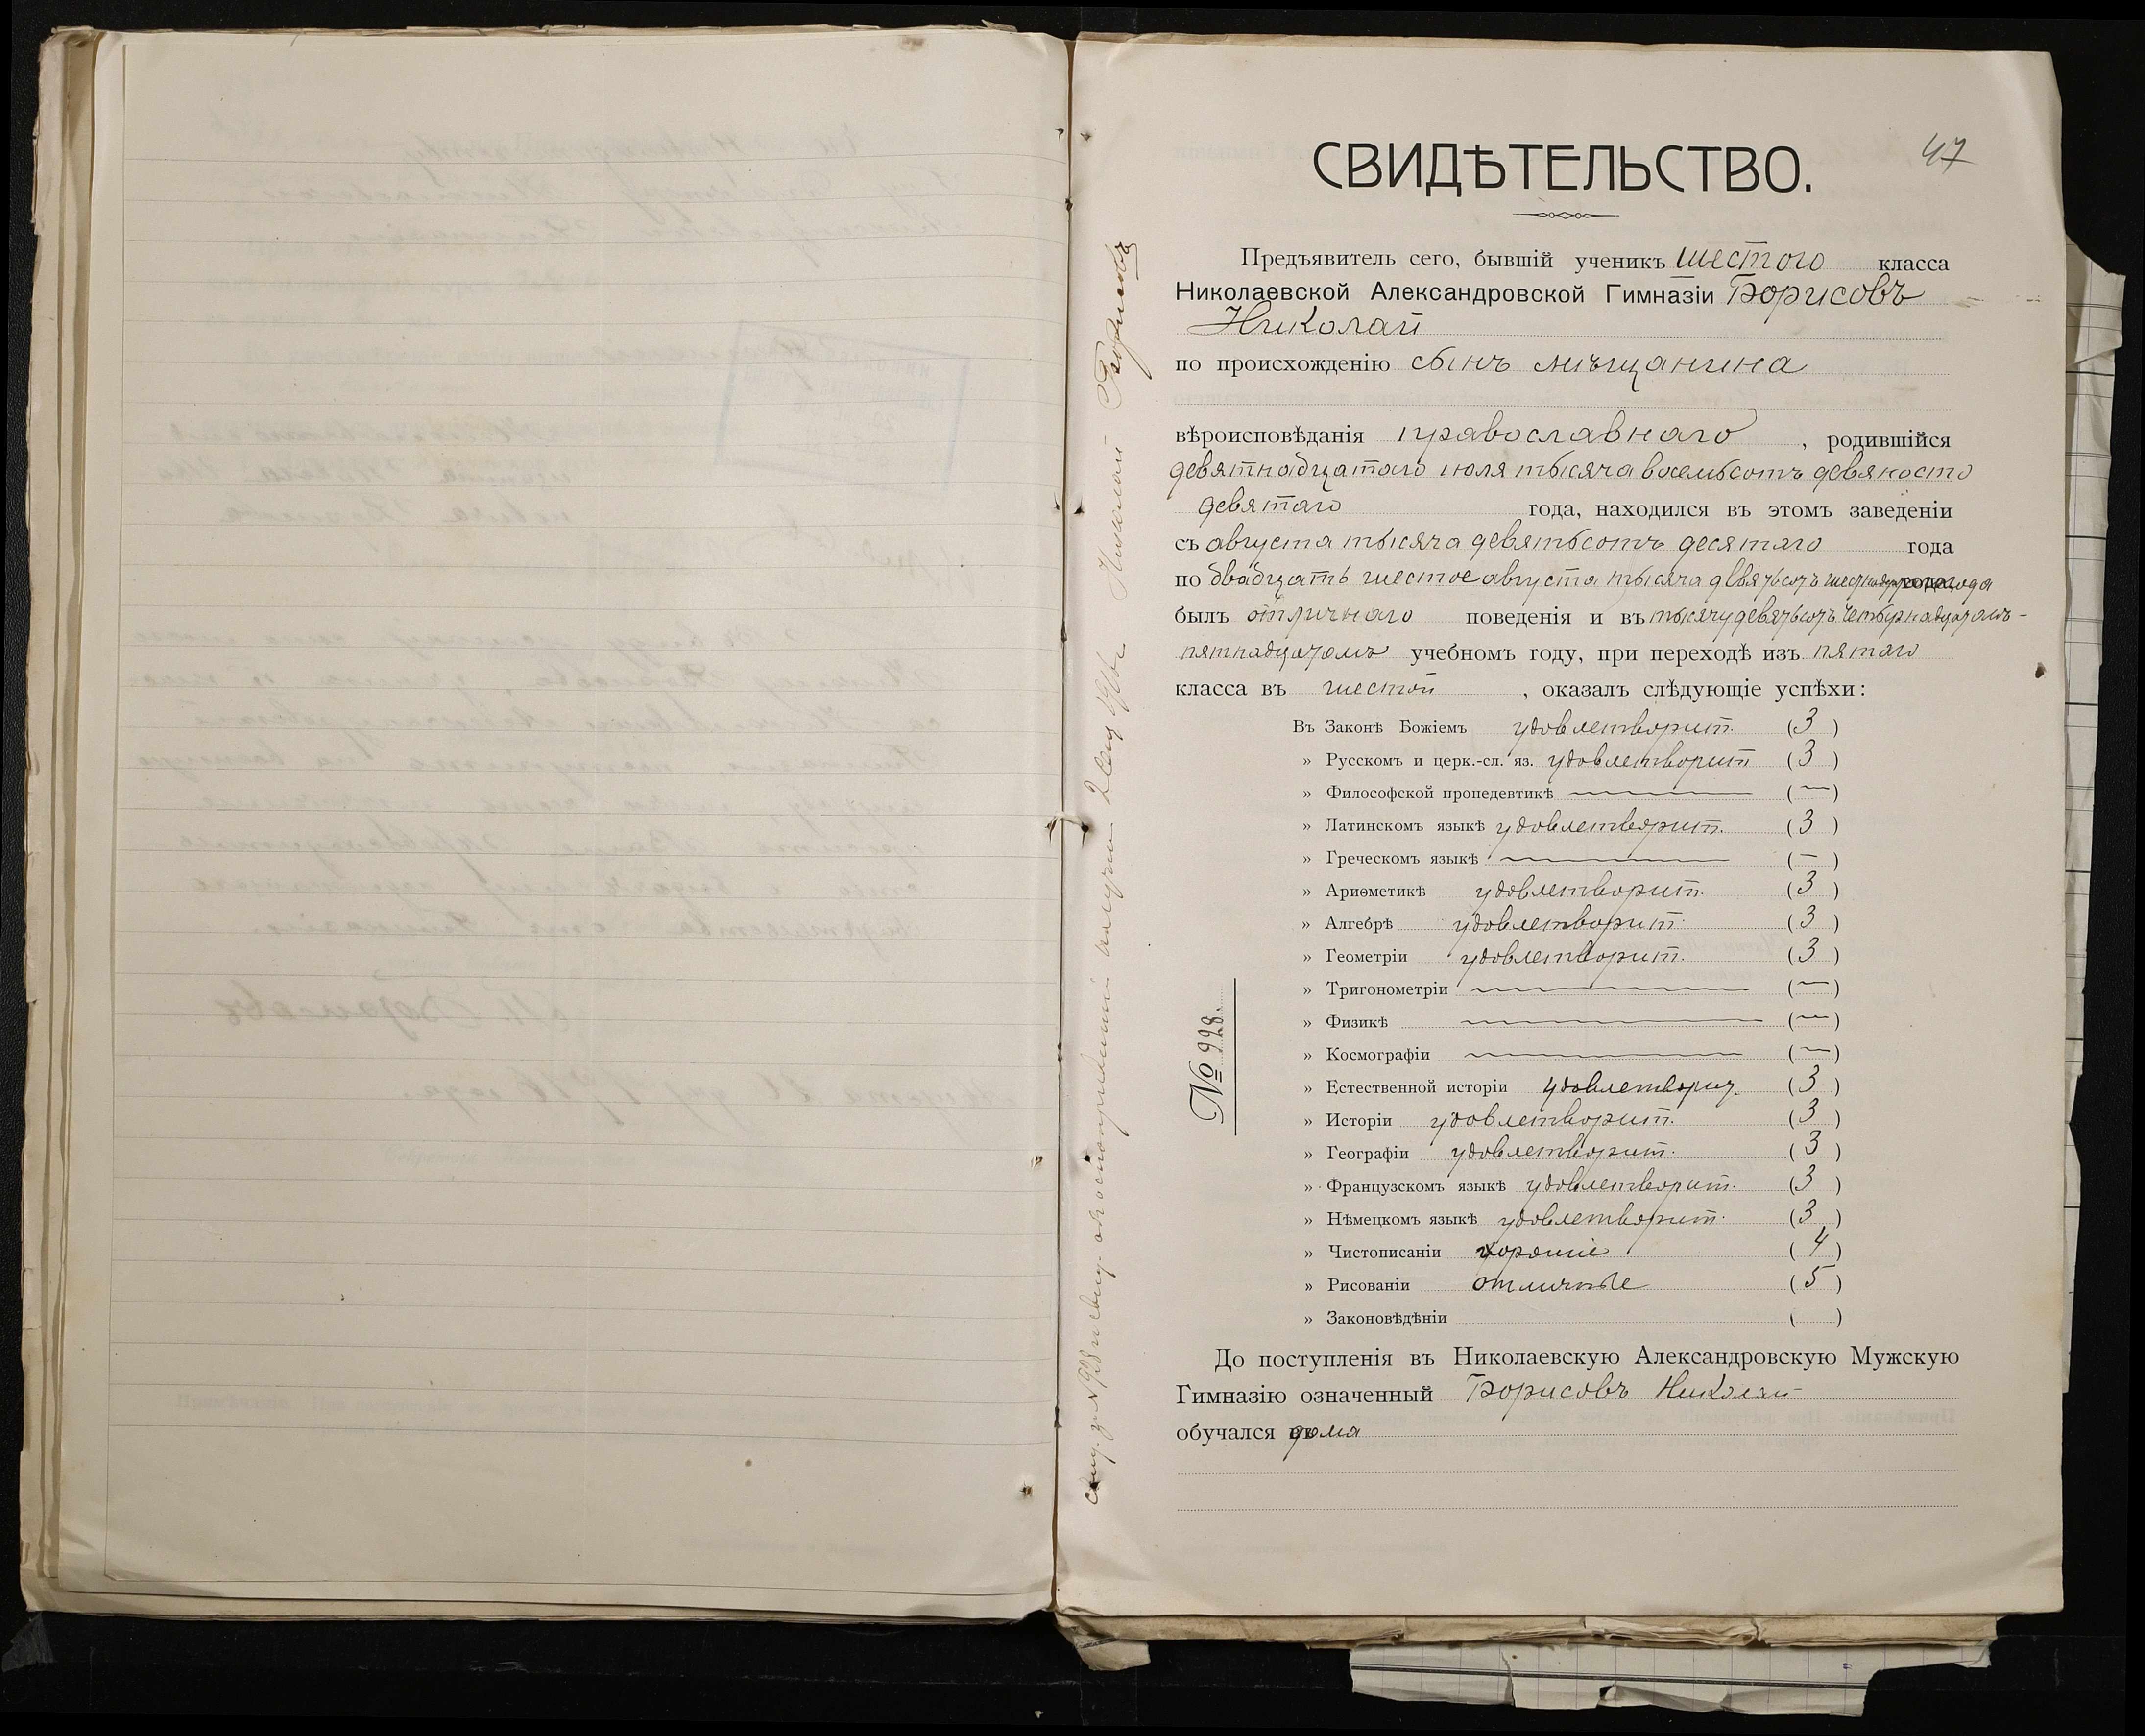 47
СВИДѢТЕЛЬСТВО.
Предъявитель сего, бывшій ученикъ шестого класса
Николаевской Александровской Гимназіи Борисовъ
Николай
по происхожденію сынъ мѣщанина
вѣроисповѣданія православнаго , родившійся
девятнадцатаго іюля тысяча восемьсотъ девяносто
девятаго года, находился въ этомъ заведеніи
съ августа тысяча девятьсотъ десятаго года
по двадцать шестое августа тысяча девятьсотъ шестнадцатаго года
былъ отличнаго поведенія и въ тысячу девятьсотъ четырнадцатомъ-
пятнадцатомъ учебномъ году, при переходѣ изъ пятаго
класса въ шестой , оказалъ слѣдующіе успѣхи:
Въ Законѣ Божіемъ удовлетворит. (3)
» Русскомъ и церк.-сл. яз. удовлетворит (3)
» Философской пропедевтикѣ — (—)
» Латинскомъ языкѣ удовлетворит. (3)
» Греческомъ языкѣ — (—)
» Ариѳметикѣ удовлетворит. (3)
» Алгебрѣ удовлетворит. (3)
» Геометріи удовлетворит. (3)
» Тригонометріи — (—)
» Физикѣ — (—)
» Космографіи — (—)
» Естественной исторіи удовлетворит. (3)
» Исторіи удовлетворит. (3)
» Географіи удовлетворит. (3)
» Французскомъ языкѣ удовлетворит. (3)
» Нѣмецкомъ языкѣ удовлетворит. (3)
» Чистописаніи хорошіе (4)
» Рисованіи отличные (5)
» Законовѣдѣніи ( )
До поступленія въ Николаевскую Александровскую Мужскую
Гимназію означенный Борисовъ Николай
обучался дома
№ 928.
свид. за № 928 и свид. объ оспопрививаніи получилъ Николай Борисовъ